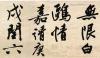 無限白
鷗情
嘉禧庚
戌閏六